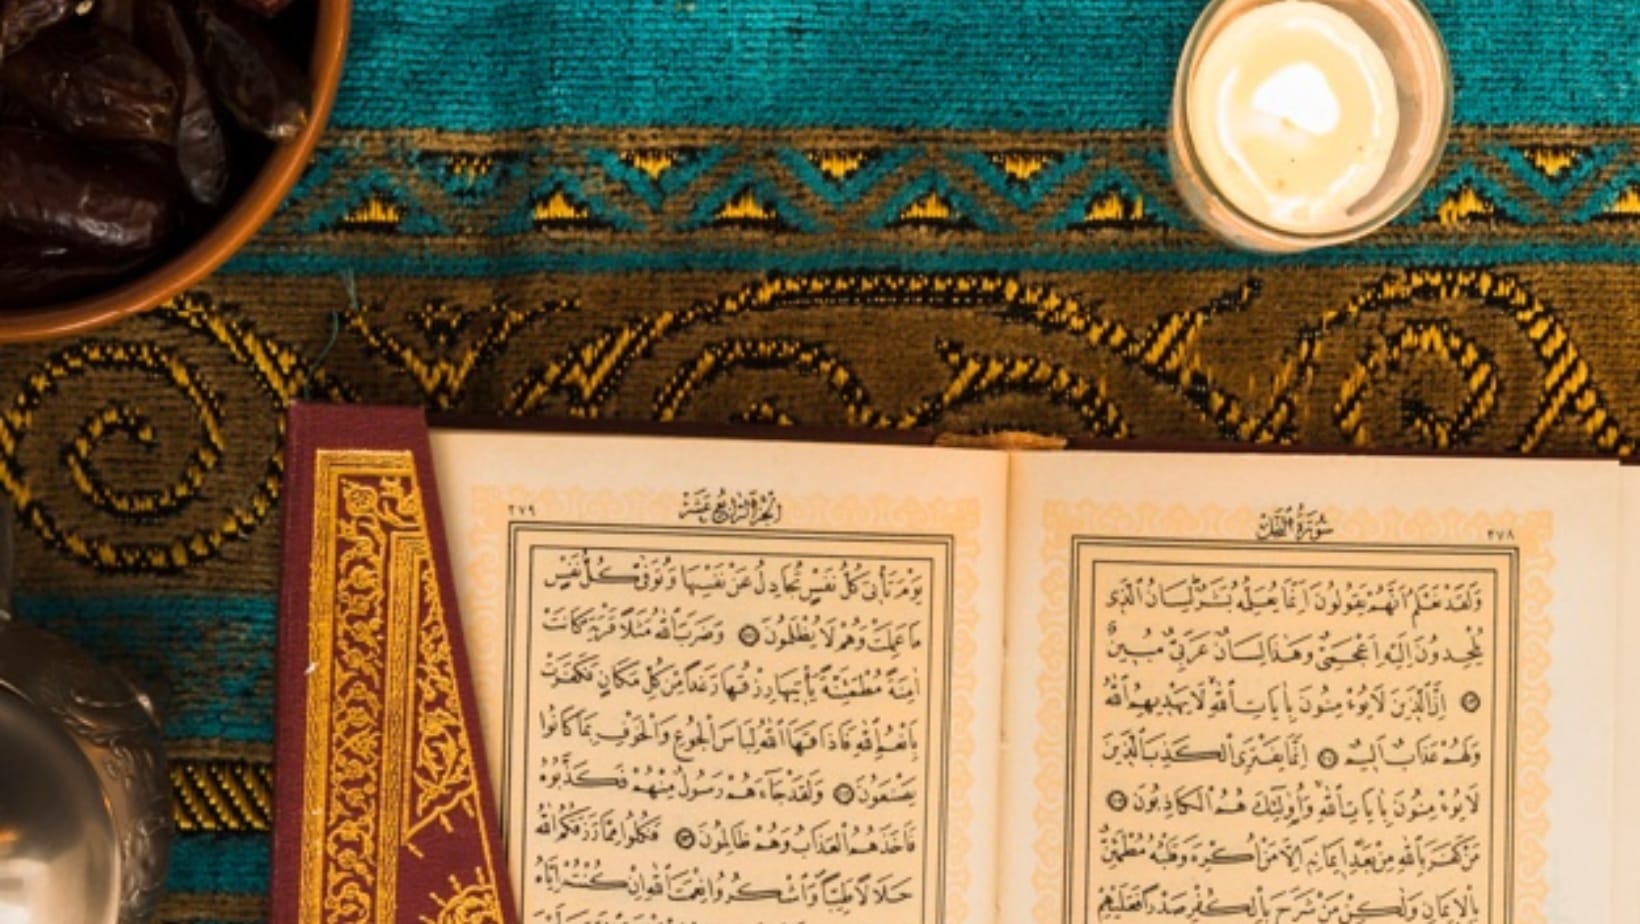 سُورَةُ النَّحْلِ ٢٧٨
وَلَقَدْ نَعْلَمُ اَنَّهُمْ يَقُولُونَ اِنَّمَا يُعَلِّمُهُ بَشَرٌ لِسَانُ الَّذِى
يُلْحِدُونَ اِلَيْهِ اَعْجَمِىٌّ وَهٰذَا لِسَانٌ عَرَبِىٌّ مُبِينٌ
اِنَّ الَّذِينَ لَا يُؤْمِنُونَ بِاٰيَاتِ اللّٰهِ لَا يَهْدِيهِمُ اللّٰهُ
وَلَهُمْ عَذَابٌ اَلِيمٌ اِنَّمَا يَفْتَرِى الْكَذِبَ الَّذِينَ
لَا يُؤْمِنُونَ بِاٰيَاتِ اللّٰهِ وَاُولٰئِكَ هُمُ الْكَاذِبُونَ
مَنْ كَفَرَ بِاللّٰهِ مِنْ بَعْدِ اِيمَانِهِ اِلَّا مَنْ اُكْرِهَ وَقَلْبُهُ مُطْمَئِنٌّ
بِالْاِيمَانِ وَلٰكِنْ مَنْ شَرَحَ بِالْكُفْرِ صَدْرًا فَعَلَيْهِمْ
اَلْجُزْءُ الرَّابِعَ عَشَرَ ٢٧٩
يَوْمَ تَأْتِى كُلُّ نَفْسٍ تُجَادِلُ عَنْ نَفْسِهَا وَتُوَفّٰى كُلُّ نَفْسٍ
مَا عَمِلَتْ وَهُمْ لَا يُظْلَمُونَ وَضَرَبَ اللّٰهُ مَثَلًا قَرْيَةً كَانَتْ
اٰمِنَةً مُطْمَئِنَّةً يَأْتِيهَا رِزْقُهَا رَغَدًا مِنْ كُلِّ مَكَانٍ فَكَفَرَتْ
بِاَنْعُمِ اللّٰهِ فَاَذَاقَهَا اللّٰهُ لِبَاسَ الْجُوعِ وَالْخَوْفِ بِمَا كَانُوا
يَصْنَعُونَ وَلَقَدْ جَاءَهُمْ رَسُولٌ مِنْهُمْ فَكَذَّبُوهُ
فَاَخَذَهُمُ الْعَذَابُ وَهُمْ ظَالِمُونَ فَكُلُوا مِمَّا رَزَقَكُمُ اللّٰهُ
حَلَالًا طَيِّبًا وَاشْكُرُوا نِعْمَتَ اللّٰهِ اِنْ كُنْتُمْ اِيَّاهُ